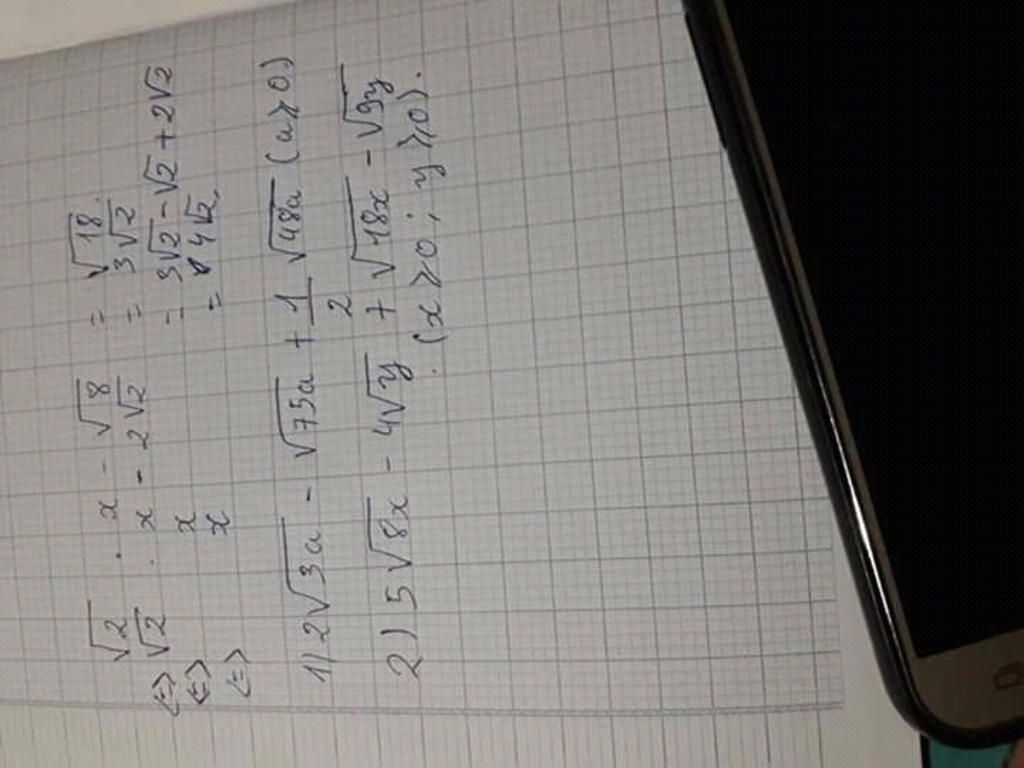 √2 . x - √8 = √18.
<=> √2 . x - 2√2 = 3√2
<=> x = 3√2 - √2 + 2√2
<=> x = 4√2.
1) 2√3a - √75a + 1/2 √48a (a ≥ 0)
2) 5√8x - 4√y + 7√18x - √9y
(x ≥ 0 ; y ≥ 0).